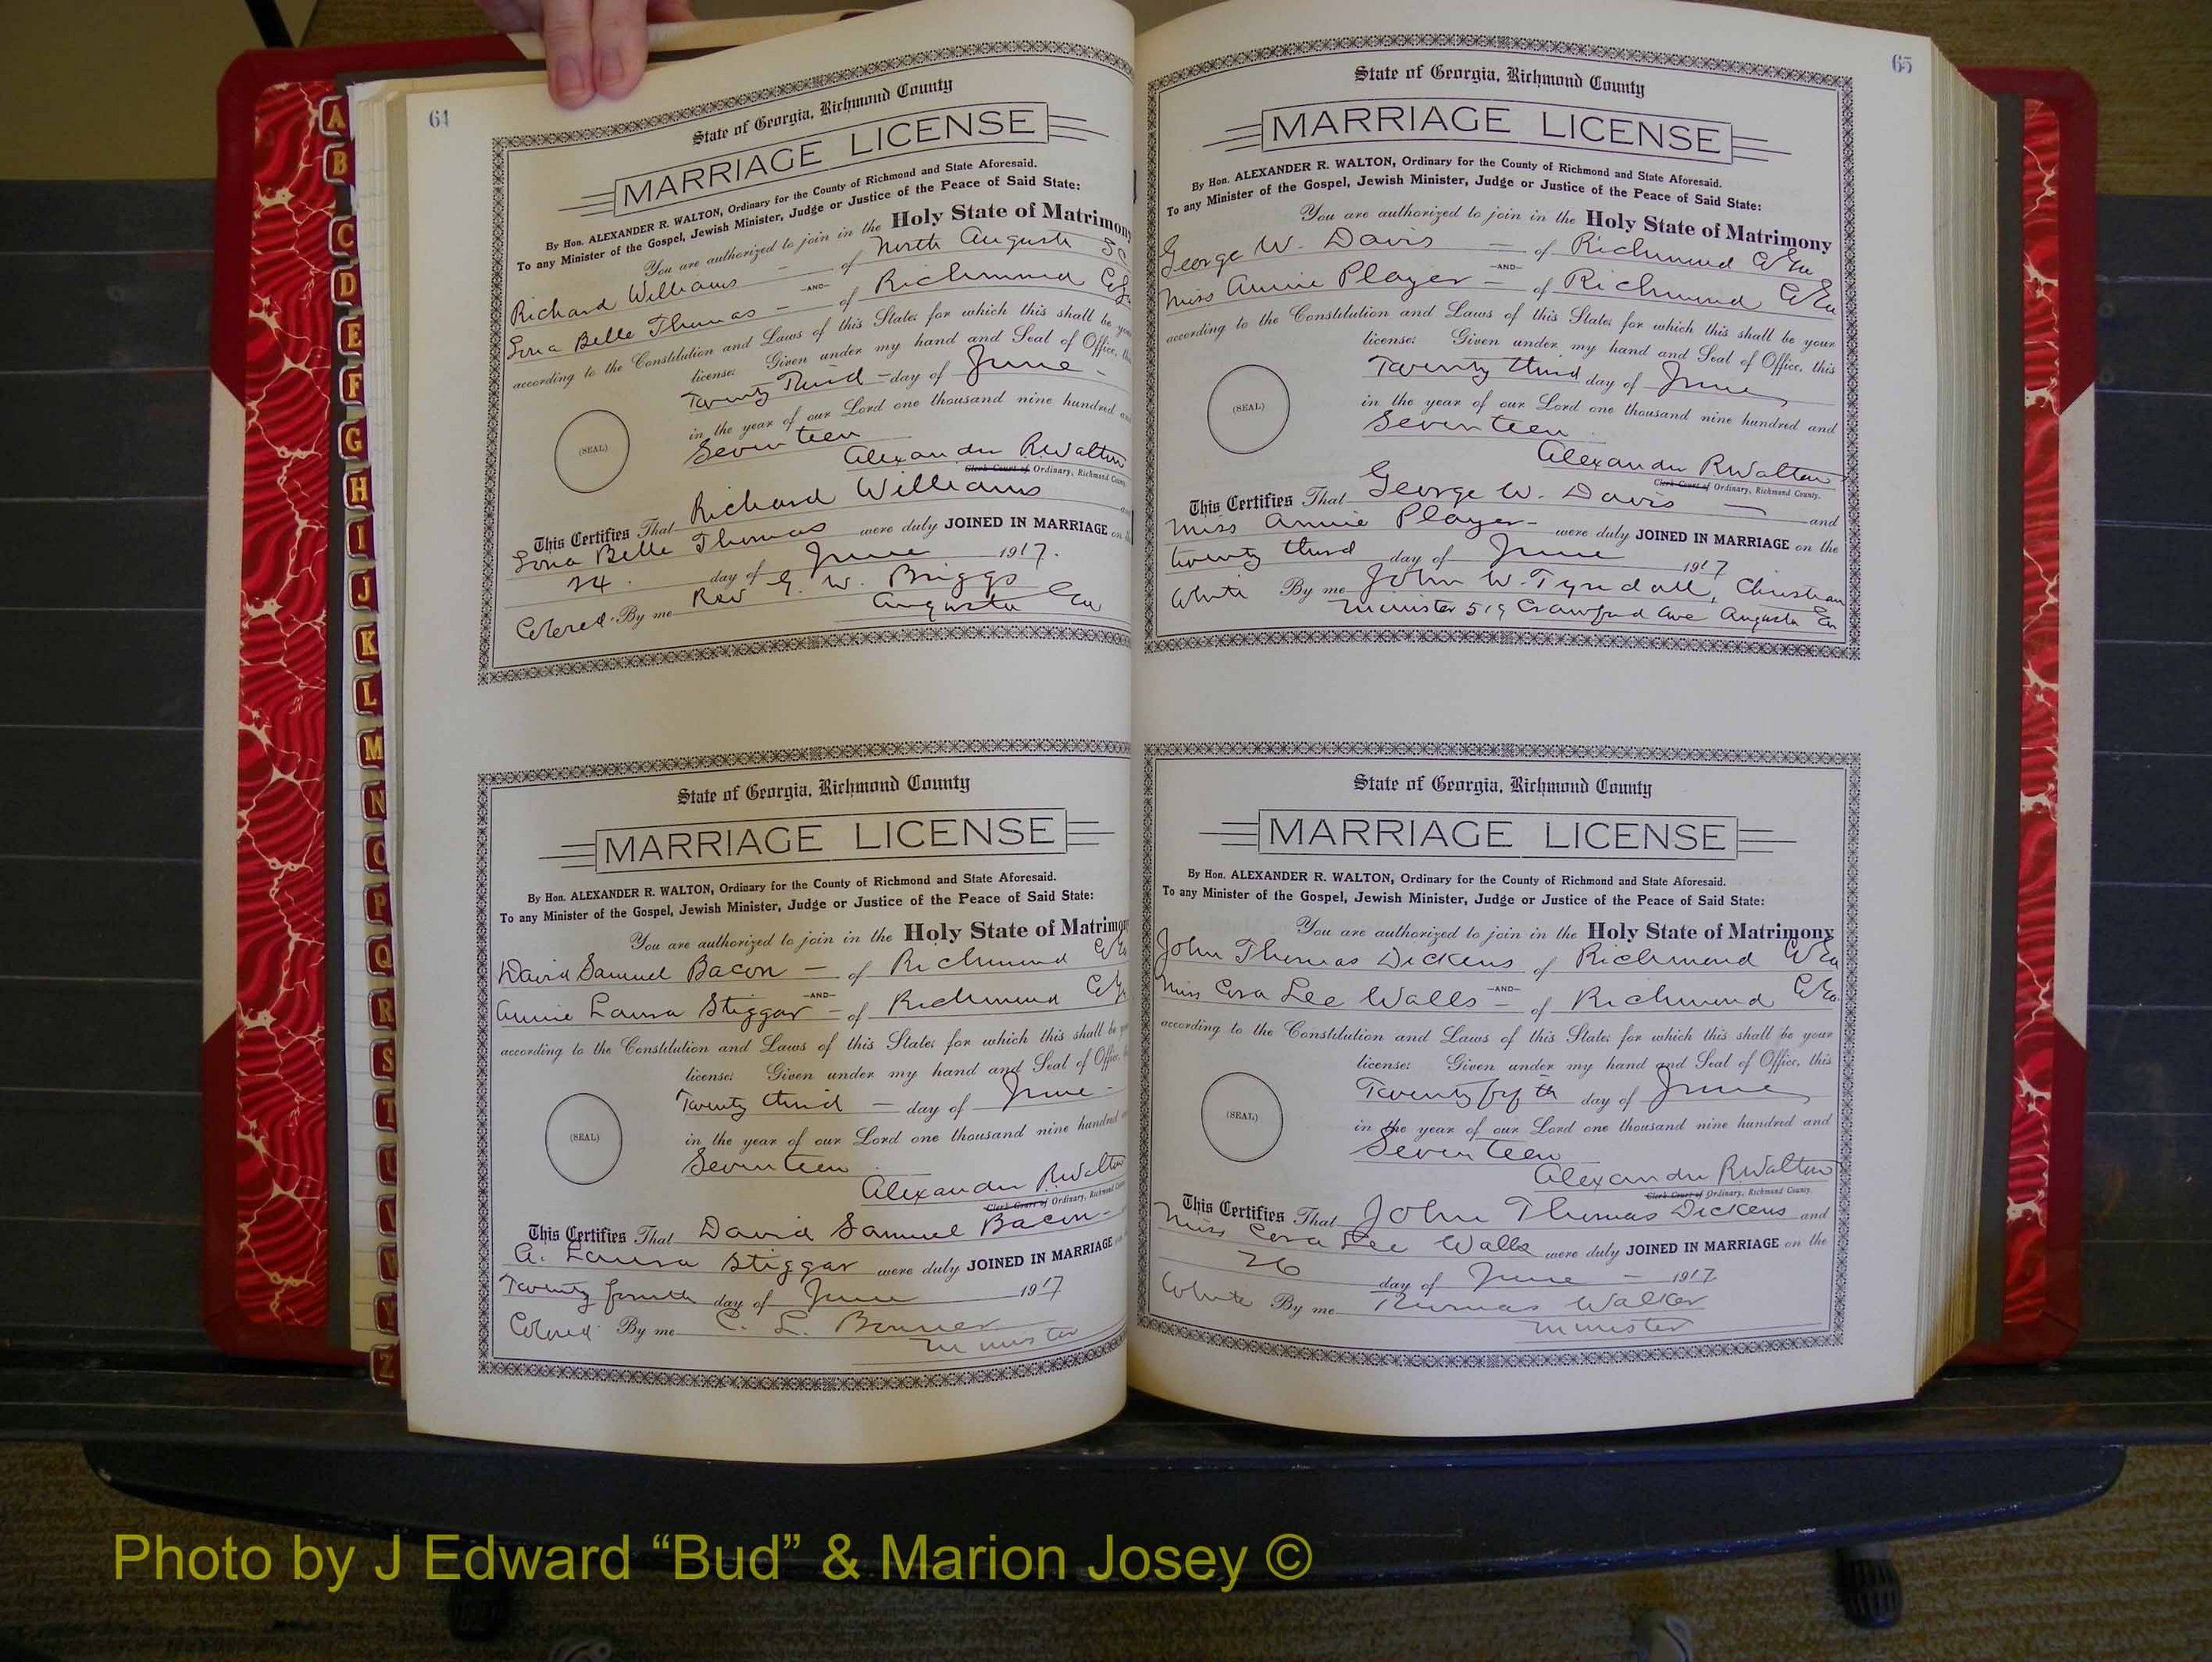 64
State of Georgia, Richmond County
MARRIAGE LICENSE
By Hon. ALEXANDER R. WALTON, Ordinary for the County of Richmond and State Aforesaid.
To any Minister of the Gospel, Jewish Minister, Judge or Justice of the Peace of Said State:
You are authorized to join in the Holy State of Matrimony
Richard Williams — of North Augusta SC
-AND-
Belle Thomas — of Richmond
according to the Constitution and Laws of this State; for which this shall be your
license: Given under my hand and Seal of Office, this
Twenty Third — day of June —
in the year of our Lord one thousand nine hundred and
Seventeen
(SEAL)
Alexander R Walton
Clerk Court of Ordinary, Richmond County.
This Certifies That Richard Williams and
Belle Thomas were duly JOINED IN MARRIAGE on
24. day of June 1917.
Colored. By me Rev G. W. Briggs
Augusta Ga
State of Georgia, Richmond County
MARRIAGE LICENSE
By Hon. ALEXANDER R. WALTON, Ordinary for the County of Richmond and State Aforesaid.
To any Minister of the Gospel, Jewish Minister, Judge or Justice of the Peace of Said State:
You are authorized to join in the Holy State of Matrimony
David Samuel Bacon — of Richmond
-AND-
Annie Laura Stiggar — of Richmond
according to the Constitution and Laws of this State; for which this shall be
license: Given under my hand and Seal of Office,
Twenty third — day of June —
in the year of our Lord one thousand nine hundred
Seventeen
(SEAL)
Alexander R Walton
Clerk Court of Ordinary, Richmond County
This Certifies That David Samuel Bacon —
A. Laura Stiggar were duly JOINED IN MARRIAGE
Twenty fourth day of June 1917
Colored. By me C. L. Bonner
Minister
65
State of Georgia, Richmond County
MARRIAGE LICENSE
By Hon. ALEXANDER R. WALTON, Ordinary for the County of Richmond and State Aforesaid.
To any Minister of the Gospel, Jewish Minister, Judge or Justice of the Peace of Said State:
You are authorized to join in the Holy State of Matrimony
George W. Davis — of Richmond Co Ga
-AND-
Miss Annie Player — of Richmond Co Ga
according to the Constitution and Laws of this State; for which this shall be your
license: Given under my hand and Seal of Office, this
Twenty third day of June
in the year of our Lord one thousand nine hundred and
Seventeen
(SEAL)
Alexander R Walton
Clerk Court of Ordinary, Richmond County.
This Certifies That George W. Davis — and
Miss Annie Player — were duly JOINED IN MARRIAGE on the
twenty third day of June 1917
White By me John W. Tyndall, Christian
Minister 519 Crawford Ave Augusta Ga
State of Georgia, Richmond County
MARRIAGE LICENSE
By Hon. ALEXANDER R. WALTON, Ordinary for the County of Richmond and State Aforesaid.
To any Minister of the Gospel, Jewish Minister, Judge or Justice of the Peace of Said State:
You are authorized to join in the Holy State of Matrimony
John Thomas Dickens of Richmond Co Ga
-AND-
Miss Cora Lee Walls — of Richmond Co Ga
according to the Constitution and Laws of this State; for which this shall be your
license: Given under my hand and Seal of Office, this
Twenty fifth day of June
in the year of our Lord one thousand nine hundred and
Seventeen
(SEAL)
Alexander R Walton
Clerk Court of Ordinary, Richmond County.
This Certifies That John Thomas Dickens and
Miss Cora Lee Walls were duly JOINED IN MARRIAGE on the
26 day of June — 1917.
White By me Thomas Walker
Minister
A
B
C
D
E
F
G
H
I
J
K
L
M
N
O
P
Q
R
S
T
U
V
W
Y
Z
Photo by J Edward “Bud” & Marion Josey ©